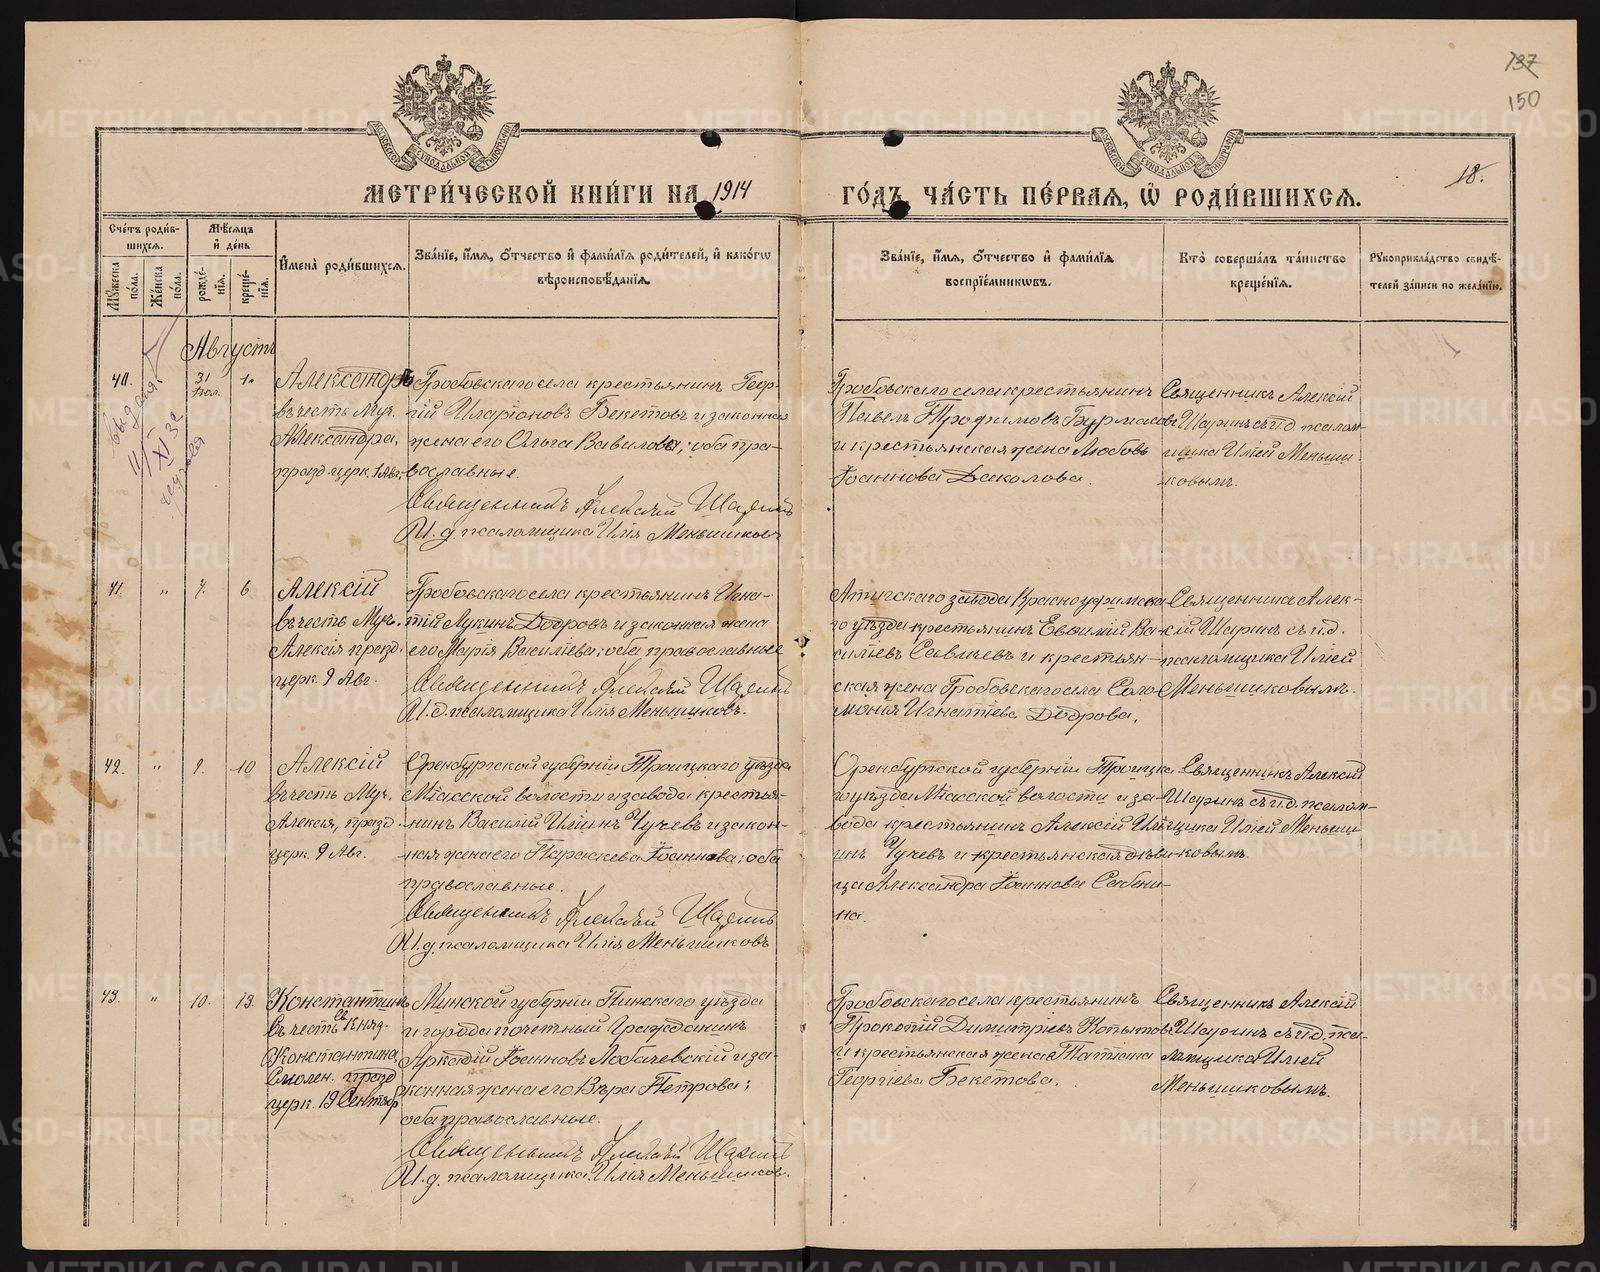 137
150
18.
МЕТРИ́ЧЕСКОЙ КНИ́ГИ НА 1914 ГО́ДЪ ЧА́СТЬ ПЕ́РВАЯ, Ѽ РОДИ́ВШИХСЯ.
Сче́тъ роди́в-
шихся.
Мꙋ́жеска по́ла.
Же́нска по́ла.
Мѣ́сяцъ
и҆ де́нь
рожде́-
нїя.
креще́-
нїя.
И҆мена̀ роди́вшихся.
Зва́нїе, и҆́мя, ѻ҆́тчество и҆ фами́лїя роди́телей, и҆ како́гѡ
вѣроисповѣ́данїя.
Зва́нїе, и҆́мя, ѻ҆́тчество и҆ фами́лїя
воспрїе́мникѡвъ.
Кто̀ соверша́лъ та́инство
креще́нїя.
Рꙋкоприкла́дство свидѣ́-
телей за́писи по жела́нїю.
Августъ
40.
31
Іюл.
1.
Александръ
въ честь Муч.
Александра,
празд. церк. 1 Авг.
Гробовскаго села крестьянинъ Геор-
гій Иларіоновъ Бекетовъ и законная
жена его Ольга Вавилова; оба пра-
вославные.
Священникъ Алексій Шаринъ
И. д. псаломщика Илія Меньшиковъ
Гробовскаго села крестьянинъ
Павелъ Трофимовъ Бурмасовъ
и крестьянская жена Любовь
Іоаннова Даколова.
Священникъ Алексій
Шаринъ съ и. д. псалом-
щика Иліей Меньши
ковымъ.
41.
"
7.
6
Алексій
въ честь Муч.
Алексія празд.
церк. 9 Авг.
Гробовскаго села крестьянинъ Игна-
тій Лукинъ Додровъ и законная жена
его Марія Василіева; оба православные
Священникъ Алексій Шаринъ
И. д. псаломщика Илія Меньшиковъ.
Атигскаго завода Красноуфимска-
го уѣзда крестьянинъ Евѳимій Ва-
силіевъ Савичевъ и крестьян-
ская жена Гробовскаго села Соло
монія Игнатіева Додрова.
Священника Алек-
сій Шаринъ съ и. д.
псаломщика Иліей
Меньшиковымъ.
42.
"
9.
10
Алексій
въ честь Муч.
Алексія, празд.
церк. 9 Авг.
Оренбургской губерніи Троицкаго уѣзда
Міасской волости и завода крестья-
нинъ Василій Иліинъ Чучевъ и закон-
ная жена его Параскева Іоаннова; оба
православные.
Священникъ Алексій Шаринъ
И. д. псаломщика Илія Меньшиковъ
Оренбургской губерніи Троицка
го уѣзда Міасской волости и за-
вода крестьянинъ Алексій Илі-
инъ Чучевъ и крестьянская дѣви-
ца Александра Іоаннова Сабени-
на.
Священникъ Алексій
Шаринъ съ и. д. псалом-
щика Иліей Меньши
ковымъ.
43.
"
10.
13.
Константинъ
въ честь Св. Княз.
Константина
Смолен. празд
церк. 19 Сентяб
Минской губерніи Пинскаго уѣзда
и города почетный Гражданинъ
Аркадій Іоанновъ Лобачевскій и за-
конная жена его Вѣра Петрова;
оба православные.
Священникъ Алексій Шаринъ
И. д. псаломщика Илія Меньшиковъ.
Гробовскаго села крестьянинъ
Прокопій Димитріевъ Копытовъ
и крестьянская жена Татіана
Георгіева Бекетова.
Священникъ Алексій
Шаринъ съ и. д. пса-
ломщика Иліей
Меньшиковымъ.